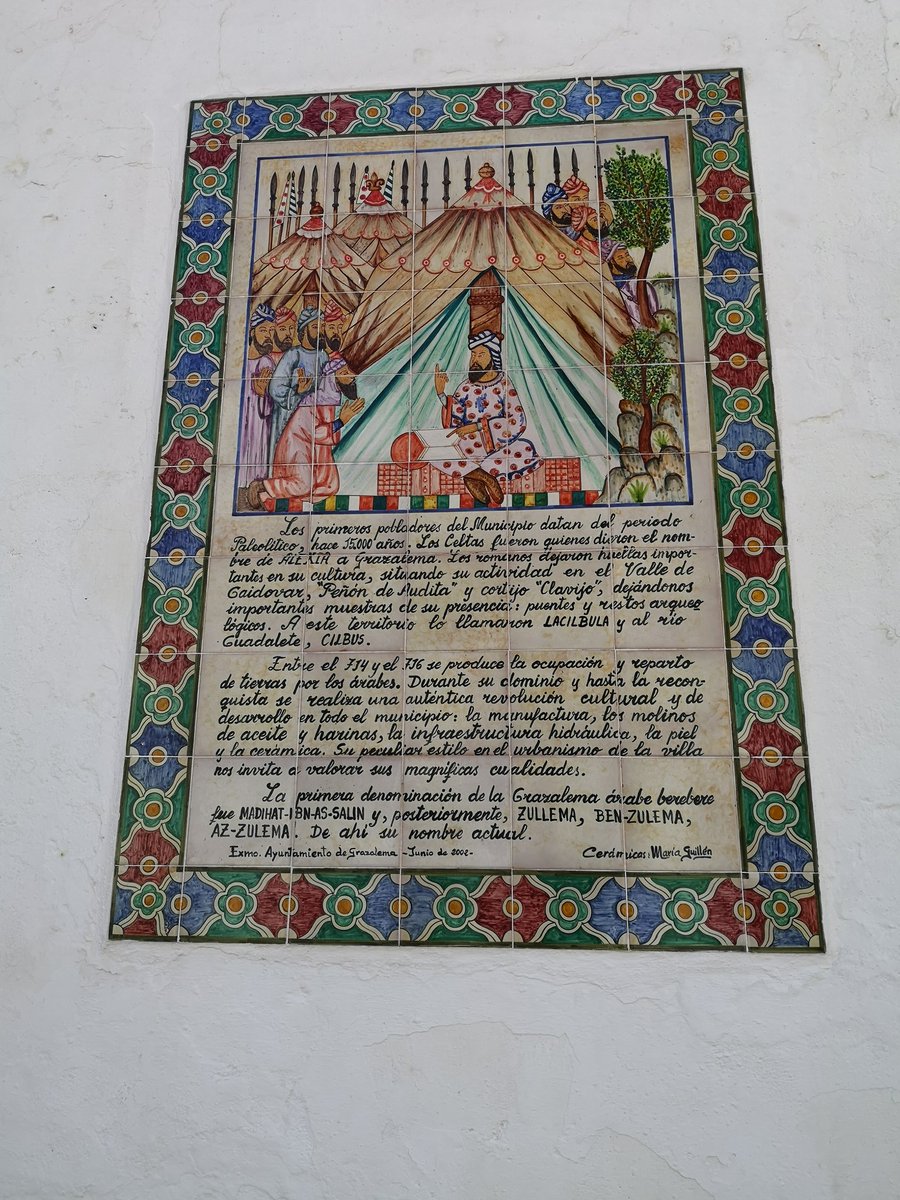 Los primeros pobladores del Municipio datan del periodo
Paleolítico, hace 15.000 años. Los Celtas fueron quienes dieron el nom-
bre de ALEXIA a Grazalema. Los romanos dejaron huellas impor-
tantes en su cultura, situando su actividad en el Valle de
Gaidovar, "Peñón de Audita" y cortijo "Clavijo", dejándonos
importantes muestras de su presencia: puentes y restos arqueo
lógicos. A este territorio lo llamaron LACILBULA y al río
Guadalete, CILBUS.
Entre el 714 y el 716 se produce la ocupación y reparto
de tierras por los árabes. Durante su dominio y hasta la recon-
quista se realiza una auténtica revolución cultural y de
desarrollo en todo el municipio: la manufactura, los molinos
de aceite y harinas, la infraestructura hidráulica, la piel
y la cerámica. Su peculiar estilo en el urbanismo de la villa
nos invita a valorar sus magníficas cualidades.
La primera denominación de la Grazalema árabe berebere
fue MADIHAT-IBN-AS-SALIN y, posteriormente, ZULLEMA, BEN-ZULEMA,
AZ-ZULEMA. De ahí su nombre actual.
Exmo. Ayuntamiento de Grazalema - Junio de 2002-
Cerámicas: María Guillén